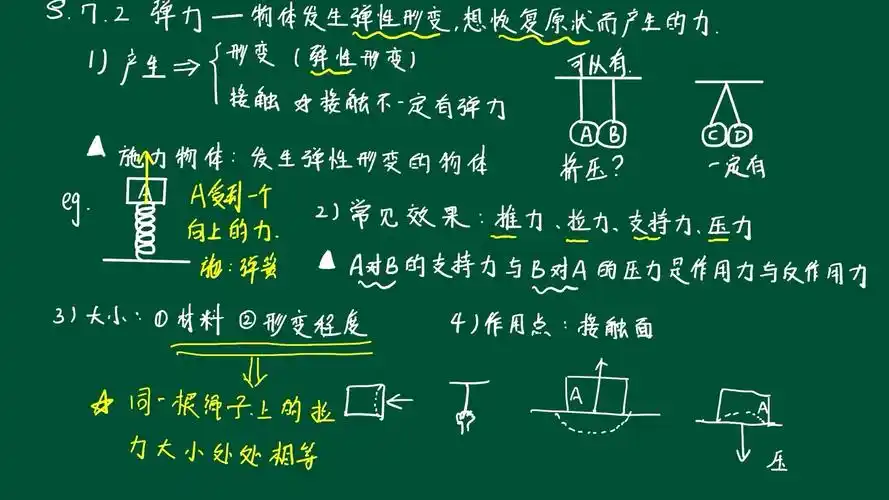 S.7.2 弹力—物体发生弹性形变,想恢复原状而产生的力.
1) 产生⇒{形变 (弹性形变)
接触 ☆接触不一定有弹力
可以有.
A B
C D
挤压?
一定有
▲ 施力物体: 发生弹性形变的物体
eg.
A
A受到一个
向上的力.
施: 弹簧
2) 常见效果: 推力、拉力、支持力、压力
▲ A对B的支持力与B对A的压力是作用力与反作用力
3) 大小: ①材料 ②形变程度
4) 作用点: 接触面
☆ 同一根绳子上的拉
力大小处处相等
A
A
压